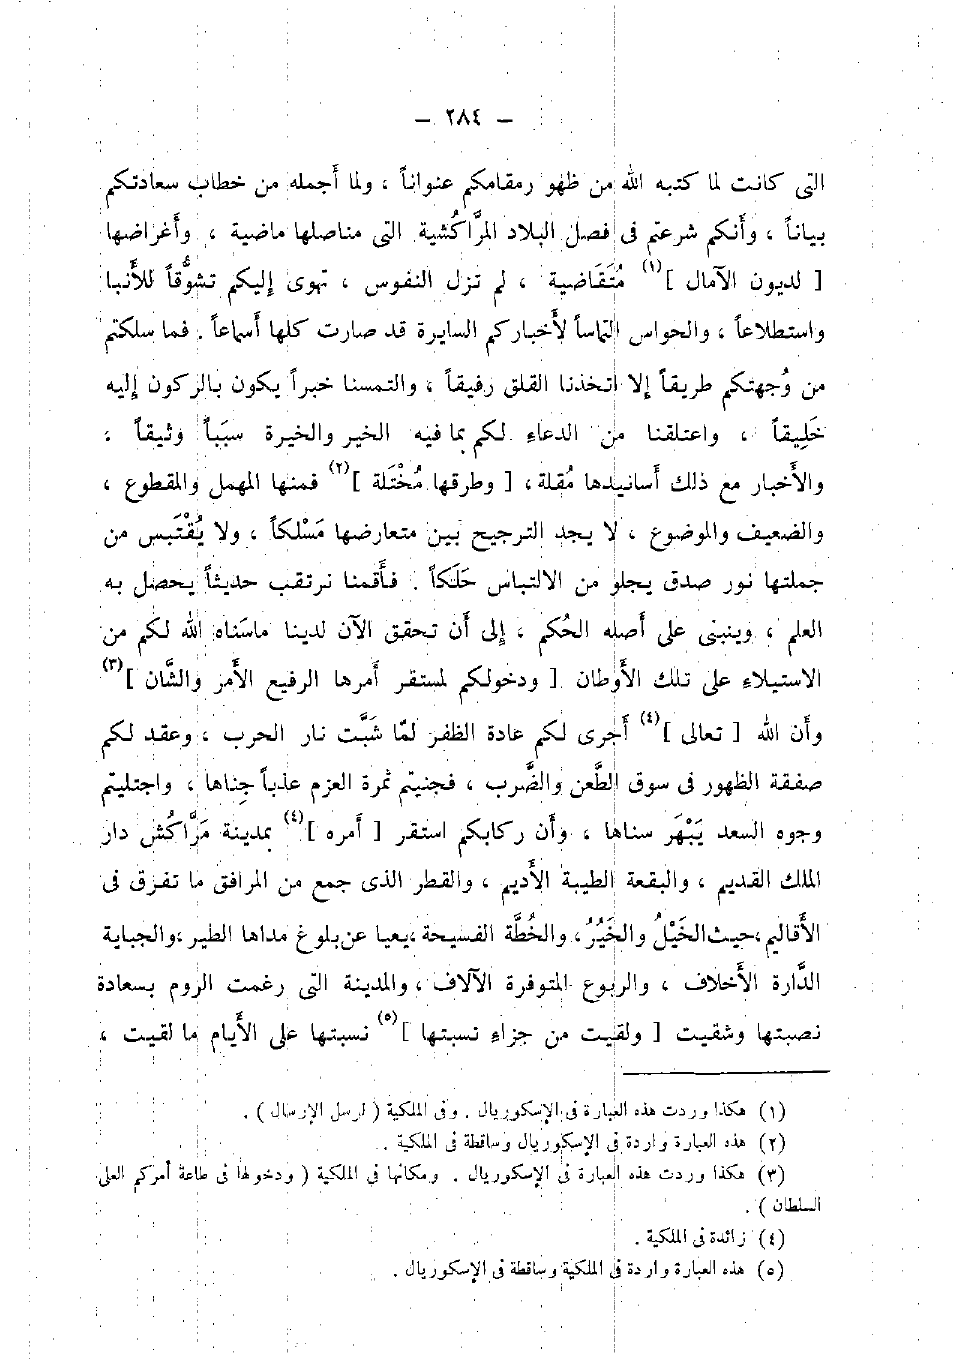 — ٢٨٤ —
التى كانت لما كتبه الله من ظهو رمقامكم عنواناً ، ولما أجمله من خطاب سعادتكم
بياناً ، وأنكم شرعتم فى فصل البلاد المرَّاكُشية التى مناصلها ماضية ، وأغراضها
[ لديون الآمال ](١) مُتَقَاضية ، لم تزل النفوس ، تهوى إليكم تشوُّقاً للأنبا
واستطلاعاً ، والحواس التماساً لأخباركم السايرة قد صارت كلها أسماعاً . فما سلكتم
من وُجهتكم طريقاً إلا اتخذنا القلق رفيقاً ، والتمسنا خبراً يكون بالركون إليه
خَلِيقاً ، واعتلقنا من الدعاءِ لكم بما فيه الخير والخيرة سبَباً وثيقاً ،
والأخبار مع ذلك أسانيدها مُقلة ، [ وطرقها مُخْتَلة ](٢) فمنها المهمل والمقطوع ،
والضعيف والموضوع ، لا يجد الترجيح بين متعارضها مَسْلكاً ، ولا يُقْتَبس من
جملتها نور صدق يجلو من الالتباس حَلَكاً . فأَقمنا نرتقب حديثاً يحصل به
العلم ، وينبنى على أصله الحُكم ، إلى أن تحقق الآن لدينا ماسَناه الله لكم من
الاستيلاءِ على تلك الأوطان [ ودخولكم لمستقر أمرها الرفيع الأمر والشَّان ](٣)
وأن الله [ تعالى ](٤) أجرى لكم عادة الظفر لمّا شَبَّت نار الحرب ، وعقد لكم
صفقة الظهور فى سوق الطَّعن والضَّرب ، فجنيتم ثمرة العزم عذباً جِناها ، واجتليتم
وجوه السعد يَبْهَر سناها ، وأن ركابكم استقر [ أمره ](٤) بمدينة مَرَّاكُش دار
الملك القديم ، والبقعة الطيبة الأديم ، والقطر الذى جمع من المرافق ما تفرق فى
الأقاليم ، حيث الخَيْلُ والخَيُرُ ، والخُطَّة الفسيحة ، يعيا عن بلوغ مداها الطير ، والجباية
الدَّارة الأخلاف ، والربوع المتوفرة الآلاف ، والمدينة التى رغمت الروم بسعادة
نصبتها وشقيت [ ولقيت من جزاءِ نسبتها ](٥) نسبتها على الأيام ما لقيت ،
(١) هكذا وردت هذه العبارة فى الإسكوريال . وفى الملكية ( لرسل الإرسال ) .
(٢) هذه العبارة واردة فى الإسكوريال وساقطة فى الملكية .
(٣) هكذا وردت هذه العبارة فى الإسكوريال . ومكانها فى الملكية ( ودخولها فى طاعة أمركم العلى
السلطان ) .
(٤) زائدة فى الملكية .
(٥) هذه العبارة واردة فى الملكية وساقطة فى الإسكوريال .